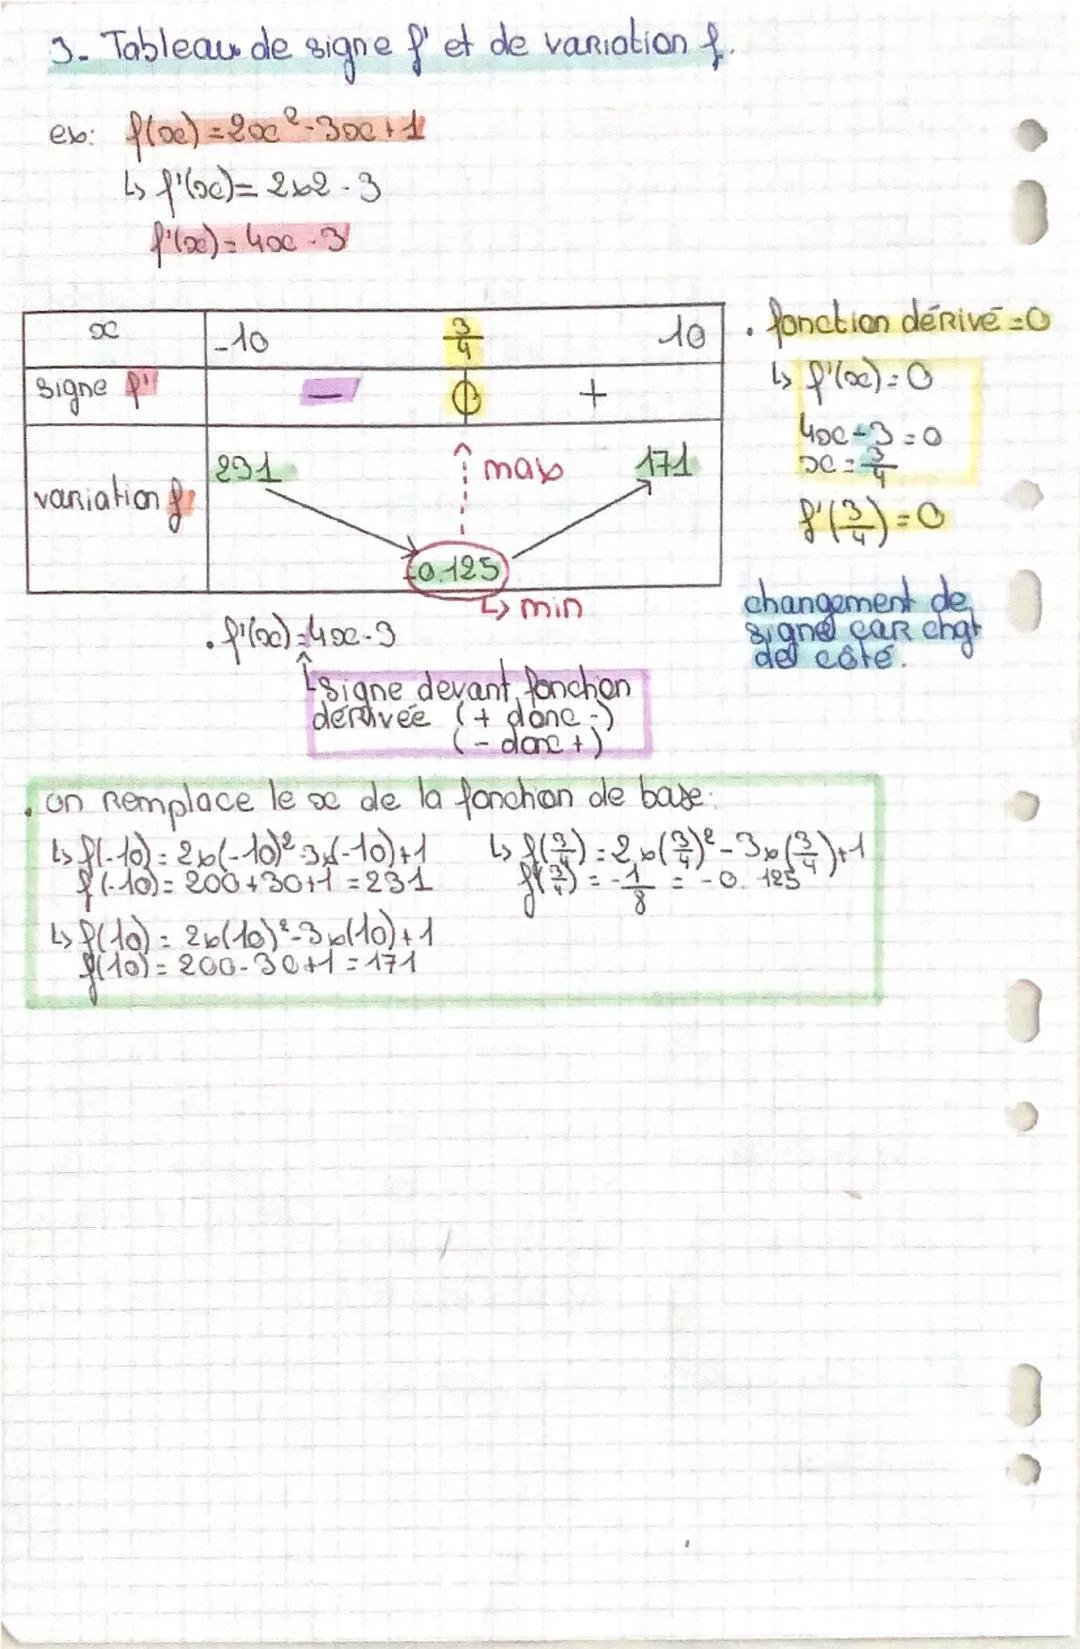 3- Tableau de signe f' et de variation f.
ex: f(x) = 2x² - 3x + 1
↳ f'(x) = 2x2 - 3
f'(x) = 4x - 3
x -10 3/4 10
signe f' - 0 +
variation f 231 max 171
-0.125
↳ min
• fonction dérivé = 0
↳ f'(x) = 0
4x - 3 = 0
x = 3/4
f'(3/4) = 0
changement de
signe car chgt
de côté.
• f'(x) = 4x - 3
signe devant fonction
dérivée (+ donc -)
(- donc +)
• on remplace le x de la fonction de base:
↳ f(-10) = 2x(-10)² - 3x(-10) + 1
f(-10) = 200 + 30 + 1 = 231
↳ f(3/4) = 2x(3/4)² - 3x(3/4) + 1
f(3/4) = -1/8 = -0.125
↳ f(10) = 2x(10)² - 3x(10) + 1
f(10) = 200 - 30 + 1 = 171